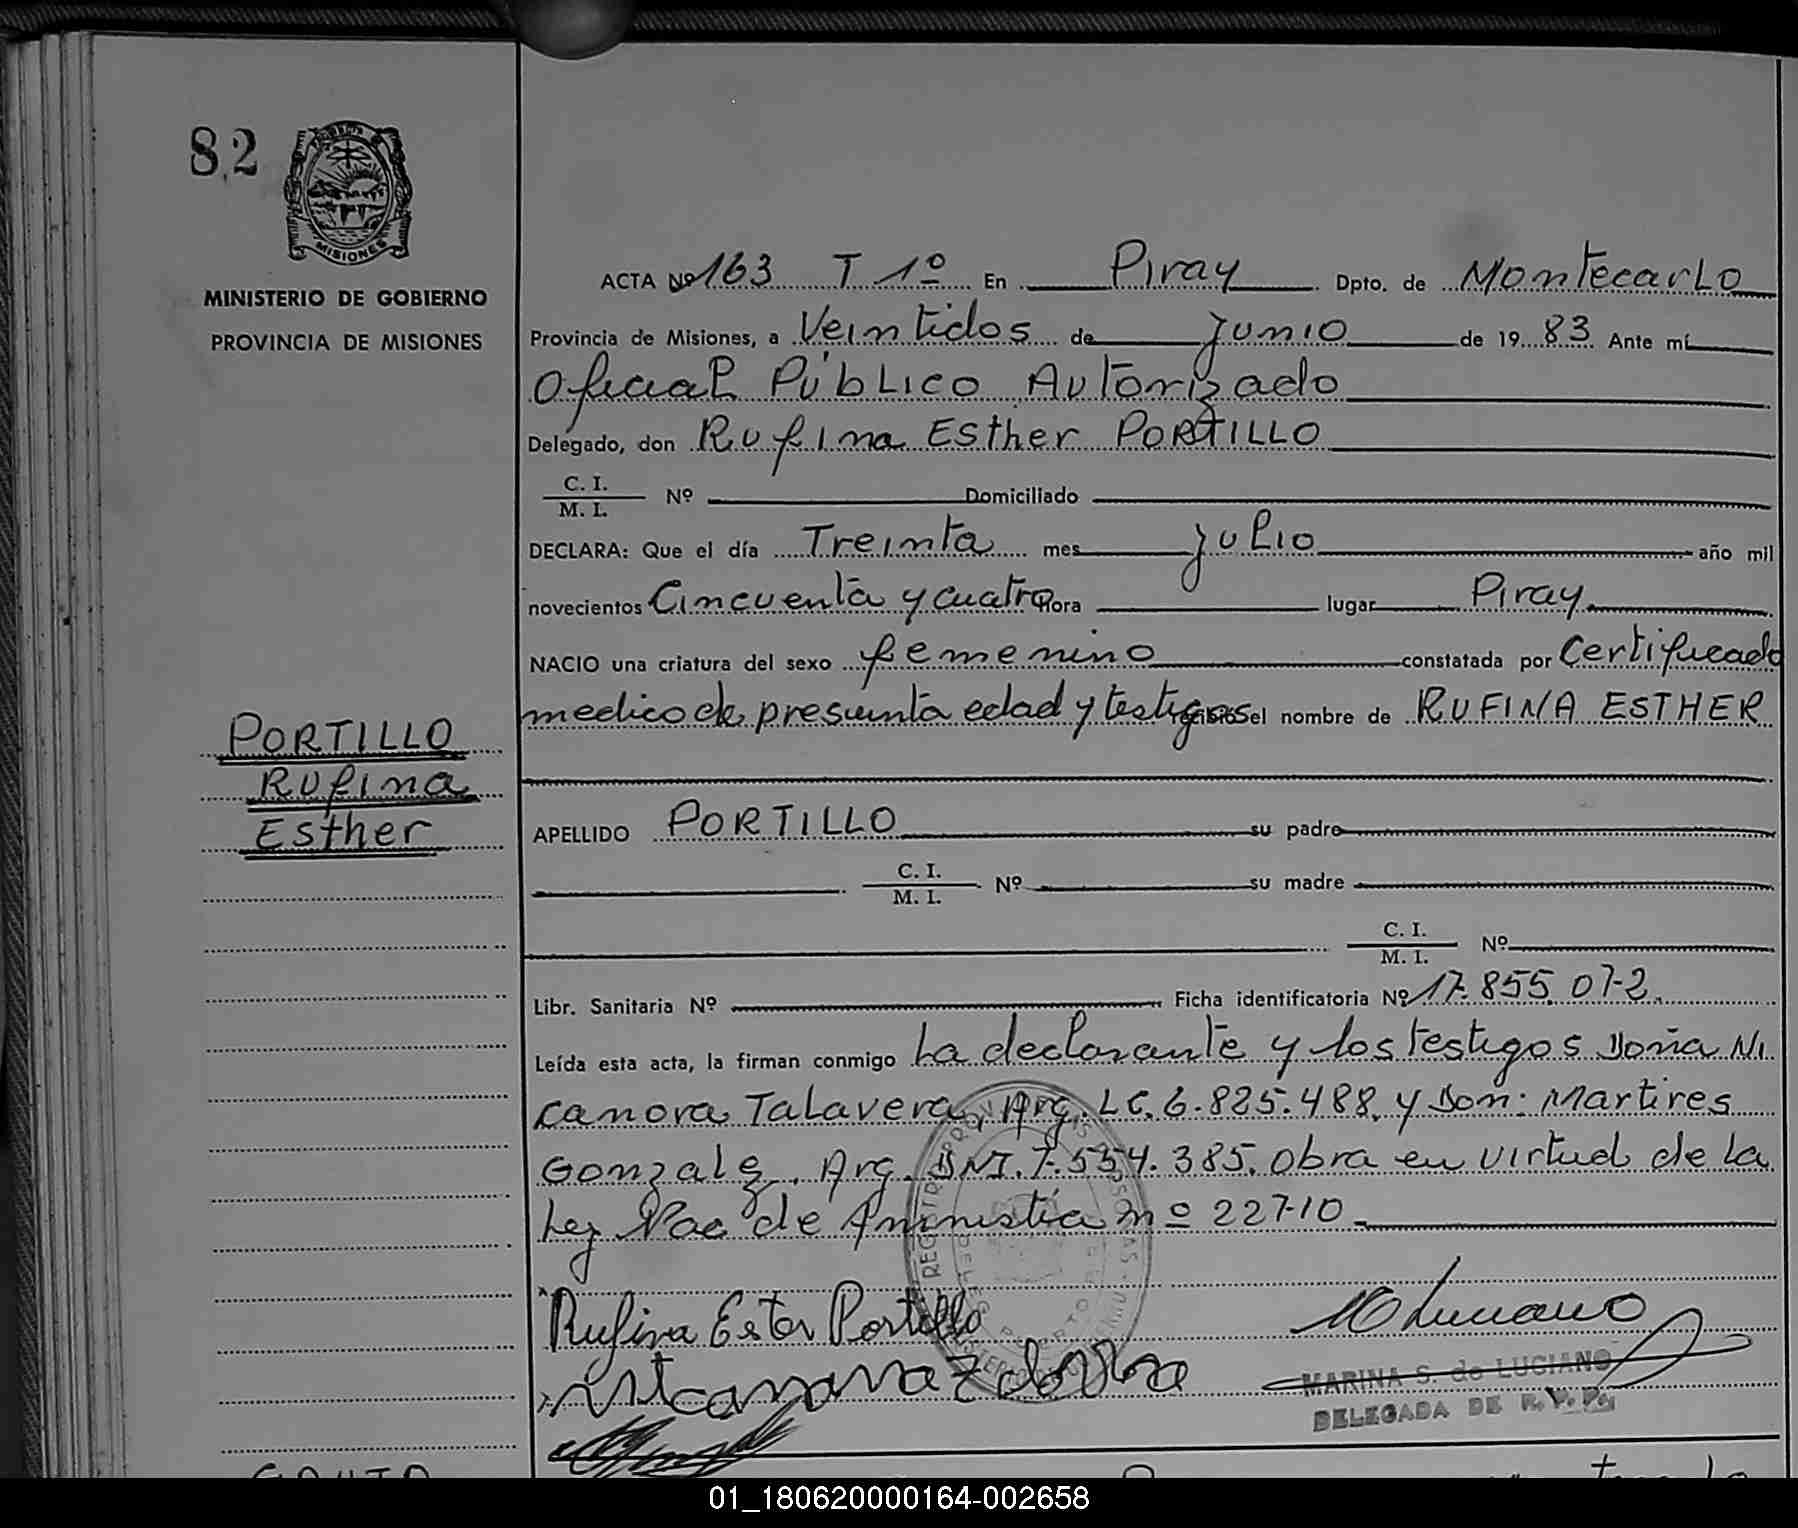 82
MISIONES
MINISTERIO DE GOBIERNO
PROVINCIA DE MISIONES
PORTILLO
Rufina
Esther
ACTA Nº 163 T 1º En Piray Dpto. de Montecarlo
Provincia de Misiones, a Veintidos de Junio de 1983 Ante mí
Oficial Público Autorizado
Delegado, don Rufina Esther PORTILLO
C. I.
M. I. Nº Domiciliado
DECLARA: Que el día Treinta mes Julio año mil
novecientos Cincuenta y cuatro hora lugar Piray
NACIO una criatura del sexo femenino constatada por Certificado
medico de presunta edad y testigos recibió el nombre de RUFINA ESTHER
APELLIDO PORTILLO su padre
C. I.
M. I. Nº su madre
C. I.
M. I. Nº
Libr. Sanitaria Nº Ficha identificatoria Nº 17.855.072
Leída esta acta, la firman conmigo La declarante y los testigos Doña Ni
canora Talavera, Arg. LC. 6.825.488. y Don: Martires
Gonzalez, Arg. DNI. 7.554.385. Obra en virtud de la
Ley Nac de Amnistia nº 22710
Rufina Ester Portillo
MARINA S. de LUCIANO
DELEGADA DE R. P. P.
01_180620000164-002658